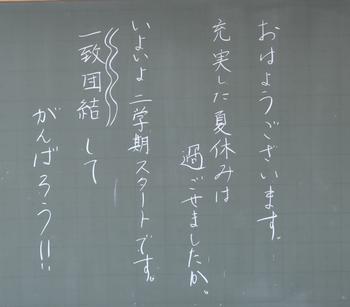 おはようございます。
充実した夏休みは
過ごせましたか。
いよいよ二学期スタートです。
一致団結して
がんばろう!!